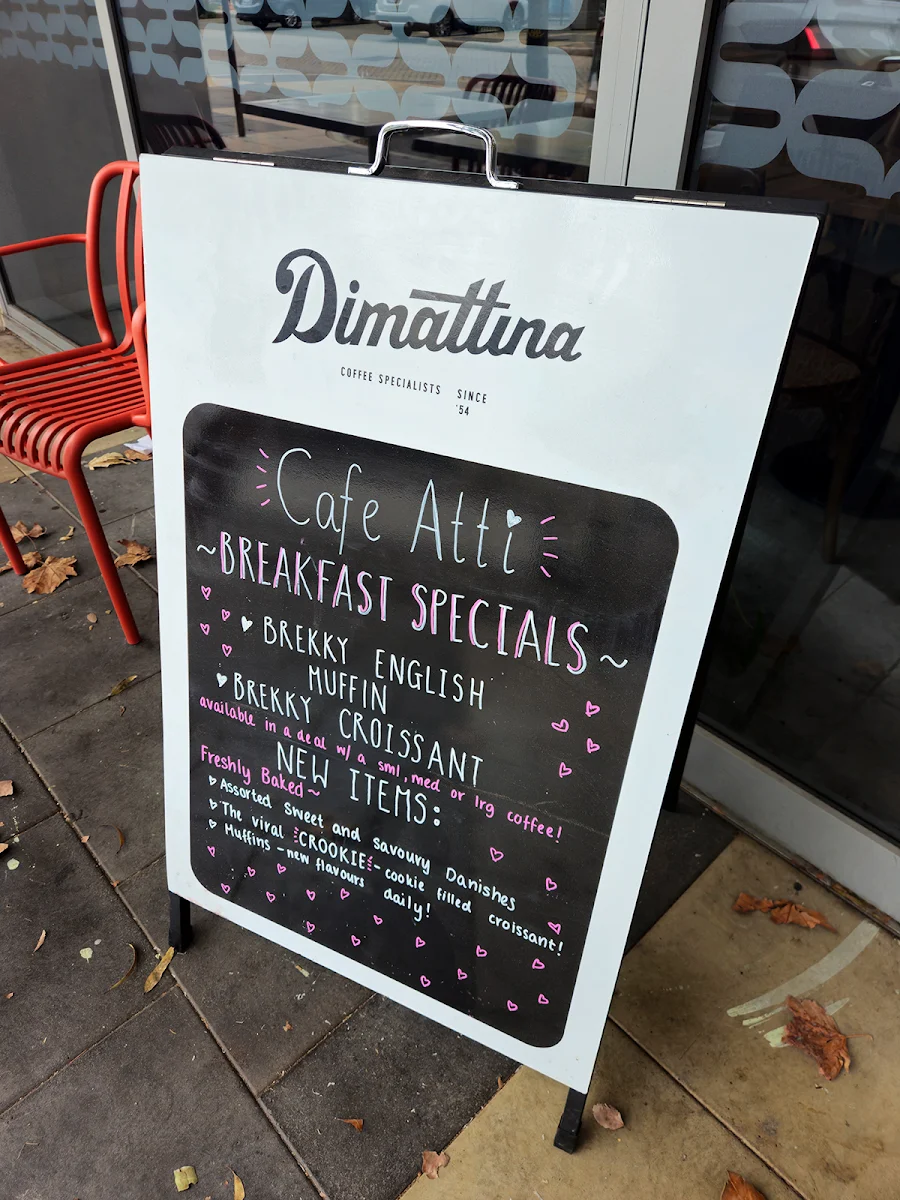 Dimattina
COFFEE SPECIALISTS SINCE
'54
Cafe Atti
~BREAKFAST SPECIALS~
BREKKY ENGLISH
MUFFIN
BREKKY CROISSANT
available in a deal w/a sml, med or lrg coffee!
NEW ITEMS:
Freshly Baked~
Assorted Sweet and savoury Danishes
The viral CROOKIE - cookie filled croissant!
Muffins - new flavours daily!